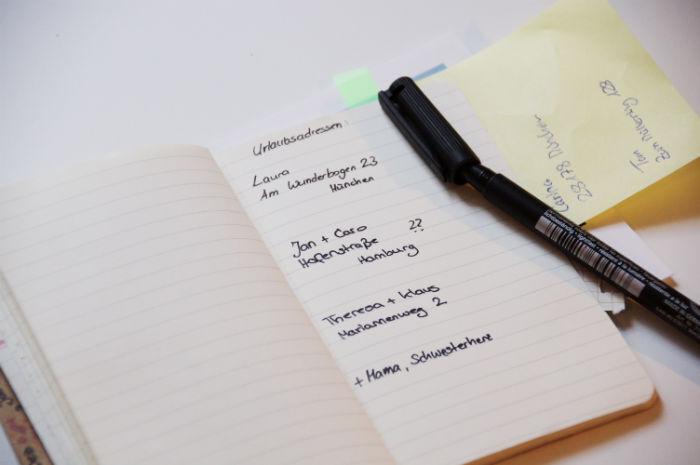 Urlaubsadressen:
Laura
Am Wunderbogen 23
München
Jan + Caro
Hafenstraße ??
Hamburg
Theresa + Klaus
Mariannenweg 2
+ Mama, Schwesterherz
Tom
128
Carina
28178